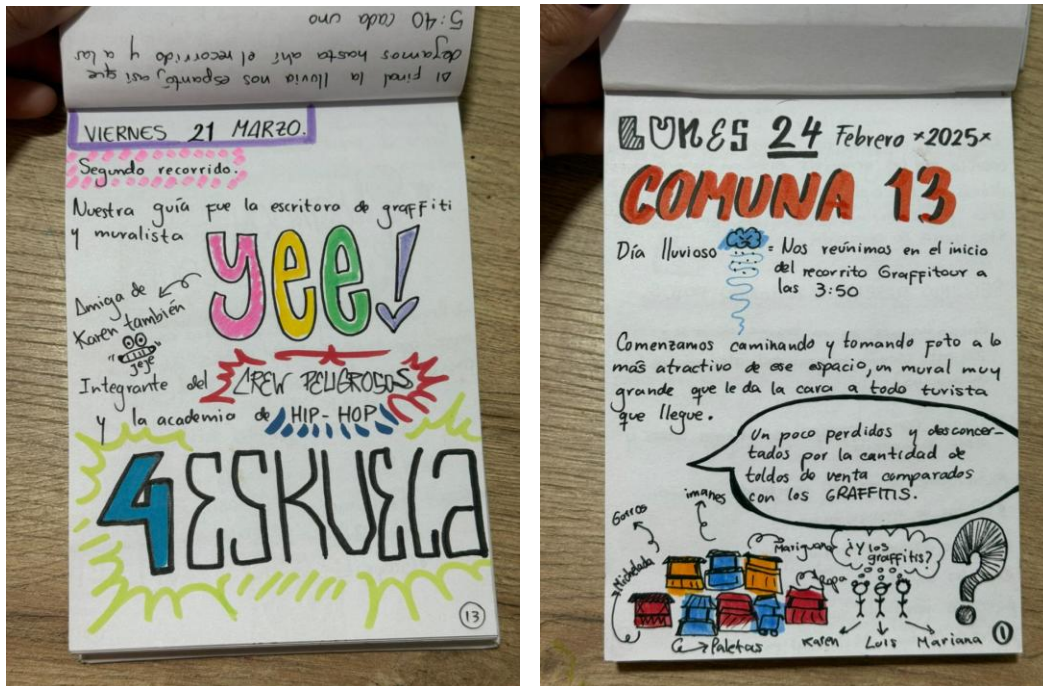 Al final la lluvia nos espantó, así que
dejamos hasta ahí el recorrido y a las
5:40 cada uno
VIERNES 21 MARZO.
Segundo recorrido.
Nuestra guía fue la escritora de graffiti
y muralista
yee!
Amiga de
Karen también
"jeje"
Integrante del CREW PELIGROSOS
y la academia de HIP-HOP
4 ESKUELA
13
LUNES 24 Febrero *2025*
COMUNA 13
Día lluvioso = Nos reúnimos en el inicio
del recorrito Graffitour a
las 3:50
Comenzamos caminando y tomando foto a lo
más atractivo de ese espacio, un mural muy
grande que le da la cara a todo turista
que llegue.
Un poco perdidos y desconcer-
tados por la cantidad de
toldos de venta comparados
con los GRAFFITIS.
Gorros
imanes
Mariguana
¿Y los
graffitis?
Michelada
Ropa
Paletas
Karen
Luis
Mariana
1